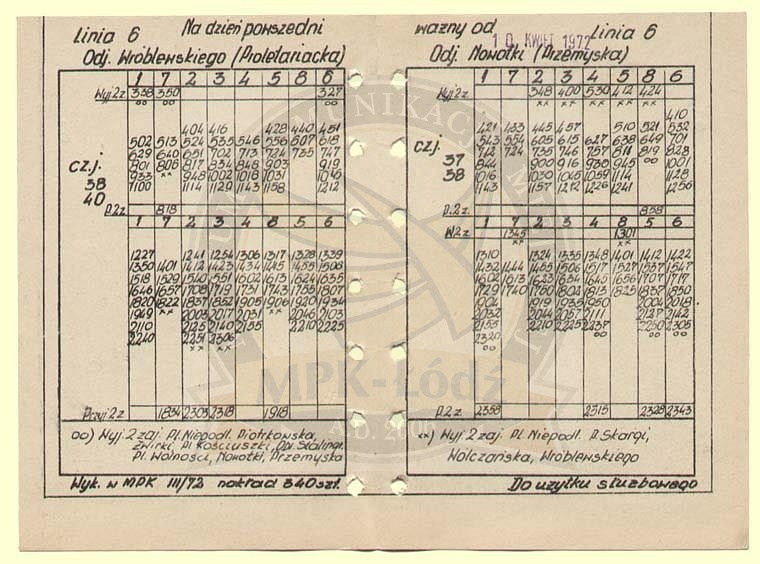 Linia 6 Na dzień powszedni
Odj. Wróblewskiego (Proletariacka)
1 7 2 3 4 5 8 6
Wyj 2 z. 338 350 327
oo oo oo
404 416 428 440 451
502 513 524 535 546 556 607 618
629 640 651 702 713 724 735 747
cz.j.
38
40
901 808 917 834 848 903 919
933 xx 948 1002 1018 1031 1046
1100 1114 1129 1143 1158 1212
P.2 z. 818
1 7 2 3 4 8 5 6
1227 1241 1254 1306 1317 1328 1339
1350 1401 1412 1423 1434 1445 1455 1506
1518 1529 1540 1551 1602 1613 1624 1635
1646 1657 1708 1719 1731 1743 1755 1807
1820 1822 1837 1852 1905 1906 1920 1934
1949 xx 2003 2017 2031 xx 2046 2103
2110 2125 2140 2155 2210 2225
2240 2251 2306
xx xx
Przyj 2 z 1834 2303 2318 1918
oo) Wyj 2 zaj. Pl. Niepodl. Piotrkowska,
Żwirki, Pl. Kościuszki, Obr. Stalingr.
Pl. Wolności, Nowotki, Przemyska
Wyk. w MPK III/72 nakład 340 szt.
ważny od 10. KWIET 1972 Linia 6
Odj. Nowotki (Przemyska)
1 7 2 3 4 5 8 6
Wyj 2 z. 348 400 530 412 424
xx xx xx xx xx
410
421 433 445 457 510 521 532
543 554 605 615 627 638 649 701
712 724 735 746 757 811 819 828
cz.j.
37
38
844 900 916 930 945 oo 1001
1016 1030 1045 1059 1114 1128
1143 1157 1212 1226 1241 1256
P. 2 z. 858
1 7 2 3 4 8 5 6
W 2 z 1345 1301
xx xx
1310 1324 1335 1348 1401 1412 1422
1432 1444 1455 1506 1517 1527 1537 1547
1602 1613 1623 1634 1645 1656 1707 1717
1729 1740 1750 1802 1815 1825 1837 1850
1904 1919 1935 1950 2004 2018
2032 2044 2057 2111 2127 2142
2155 2210 2225 2237 2250 2305
2320 oo oo oo
oo
P. 2 z 2358 2315 2328 2343
xx) Wyj 2 zaj. Pl. Niepodl. P. Skargi,
Wólczańska, Wróblewskiego
Do użytku służbowego
MPK-Łódź